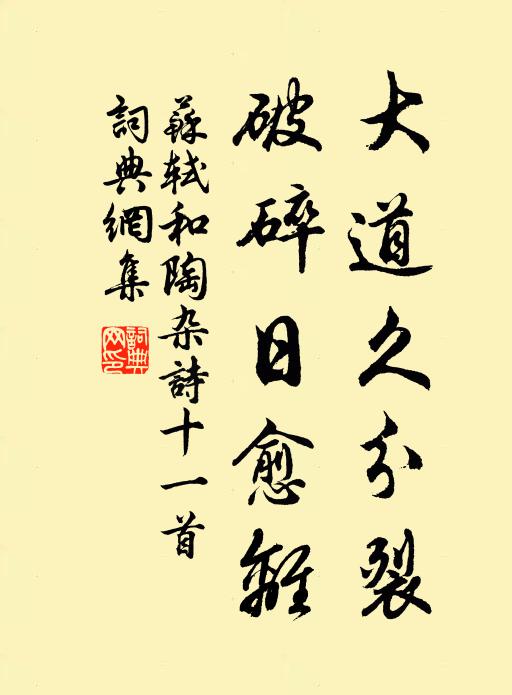 大道久分裂
破碎日愈離
蘇軾和陶杂詩十一首
詞典網集
詞典網印